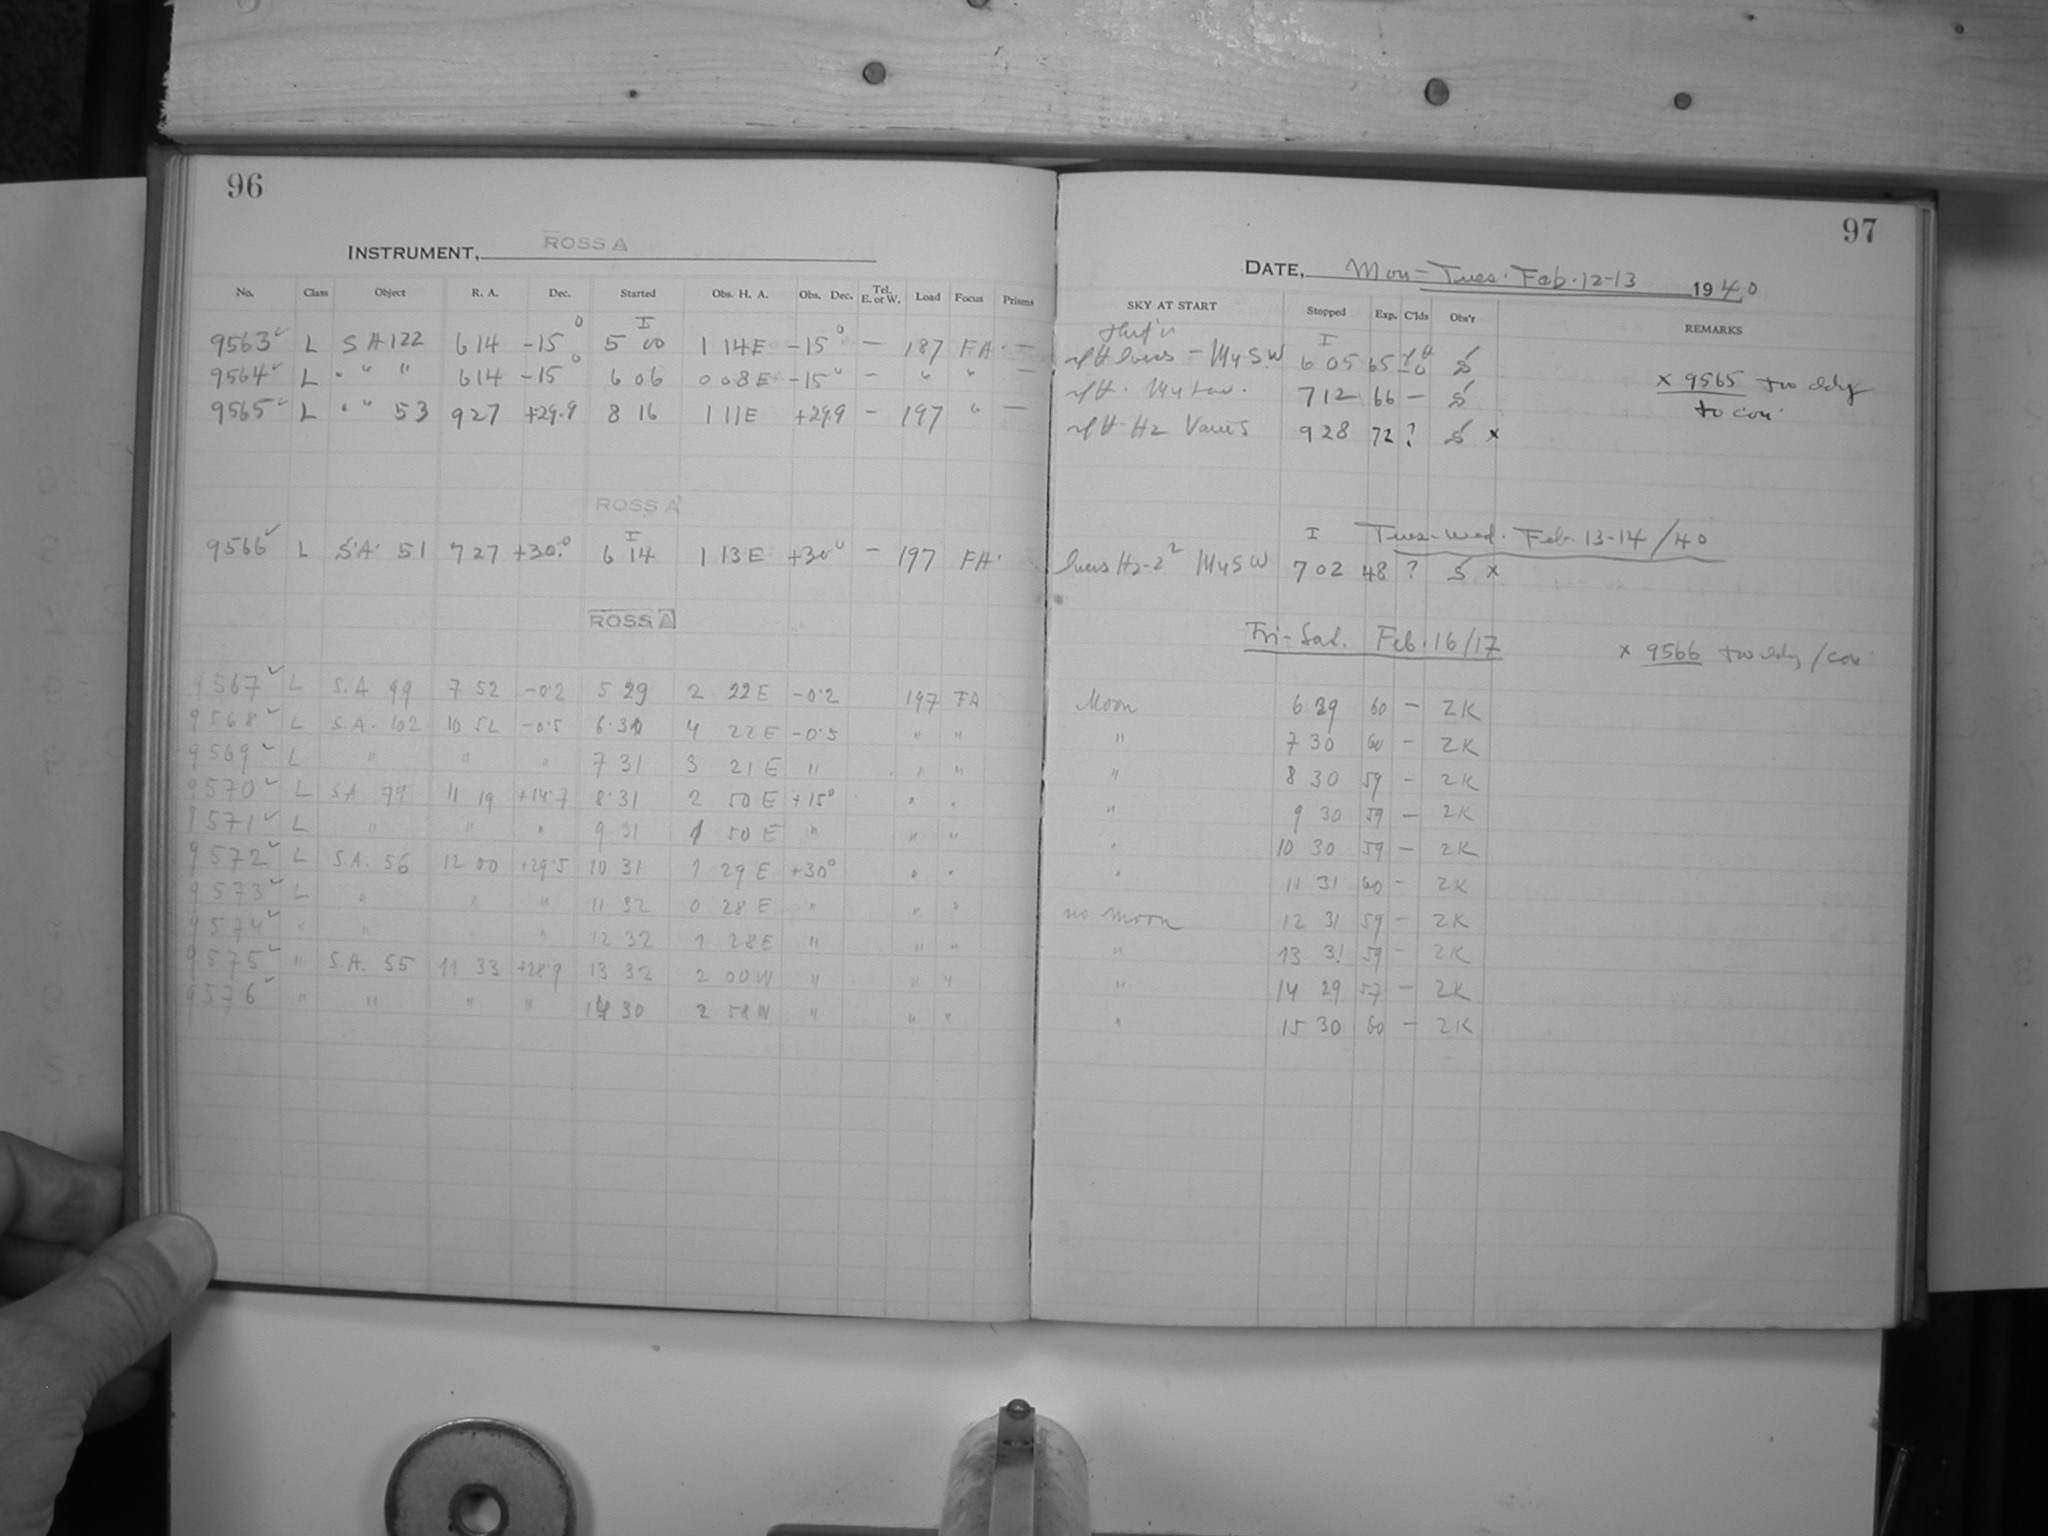 96
INSTRUMENT, ROSS A
No. Class Object R. A. Dec. Started Obs. H. A. Obs. Dec. Tel. E. or W. Load Focus Prisms
9563 ✓ L SA 122 6 14 -15° I 5 00 1 14E -15° — 187 FA —
9564 ✓ L " " " 6 14 -15° 6 06 0 08E -15° — " " —
9565 ✓ L " " 53 9 27 +29.9 8 16 1 11E +29.9 — 197 " —
ROSS A
9566 ✓ L S.A. 51 7 27 +30.° I 6 14 1 13E +30° — 197 FA.
ROSS A
9567 ✓ L S.A 99 7 52 -0.2 5 29 2 22E -0.2 197 FA
9568 ✓ L S.A. 102 10 52 -0.5 6.30 4 22E -0.5 " "
9569 ✓ L " " " 7 31 3 21E " " "
9570 ✓ L SA 79 11 19 +14.7 8.31 2 50E +15° " "
9571 ✓ L " " " 9 31 1 50E " " "
9572 ✓ L S.A. 56 12 00 +29.5 10 31 1 29E +30° " "
9573 ✓ L " " " 11 32 0 28E " " "
9574 ✓ " " " " 12 32 1 28E " " "
9575 ✓ " S.A. 55 11 33 +28.9 13 32 2 00W " " "
9576 ✓ " " " " 14 30 2 58W " " "
97
DATE, Mon-Tues. Feb. 12-13 1940
SKY AT START Stopped Exp. C'lds Obs'r REMARKS
MySW I 6 05 65 S
7 12 66 — S × 9565
H2 9 28 72 ? S ×
Tues-Wed. Feb. 13-14/40
H2-2² MySW I 7 02 48 ? S ×
Fri-Sat. Feb. 16/17 × 9566
Moon 6 29 60 — ZK
" 7 30 60 — ZK
" 8 30 59 — ZK
" 9 30 59 — ZK
" 10 30 59 — ZK
" 11 31 60 — ZK
no moon 12 31 59 — ZK
" 13 31 59 — ZK
" 14 29 57 — ZK
" 15 30 60 — ZK